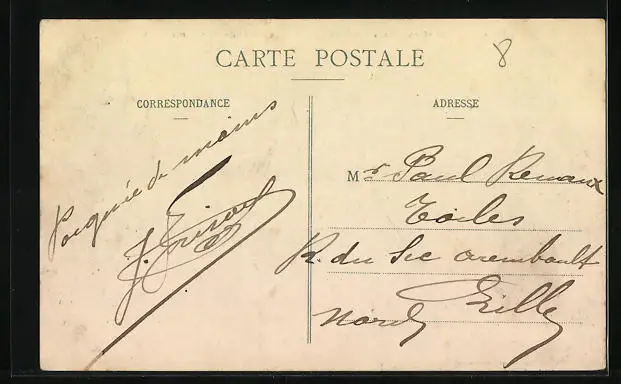 CARTE POSTALE
8
CORRESPONDANCE
ADRESSE
Poignée de mains
Mr Paul Remaux
Toiles
R. du Sec arembault
Lille
Nord